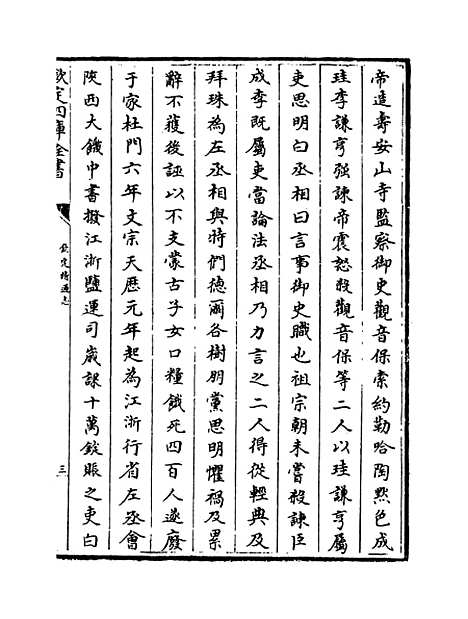 帝造壽安山寺監察御史觀音保索約勒哈陶黙色成
珪李謙亨强諫帝震怒殺觀音保等二人以珪謙亨屬
吏思明白丞相曰言事御史職也祖宗朝未嘗殺諫臣
成李既屬吏當論法丞相乃力言之二人得從輕典及
拜珠為左丞相與特們徳爾各樹朋黨思明懼禍及累
辭不獲後誣以不支蒙古子女口糧餓死四百人遂廢
于家杜門六年文宗天厯元年起為江浙行省左丞會
陜西大饑中書撥江浙鹽運司嵗課十萬錠賑之吏白
欽定四庫全書
欽定續通志
三